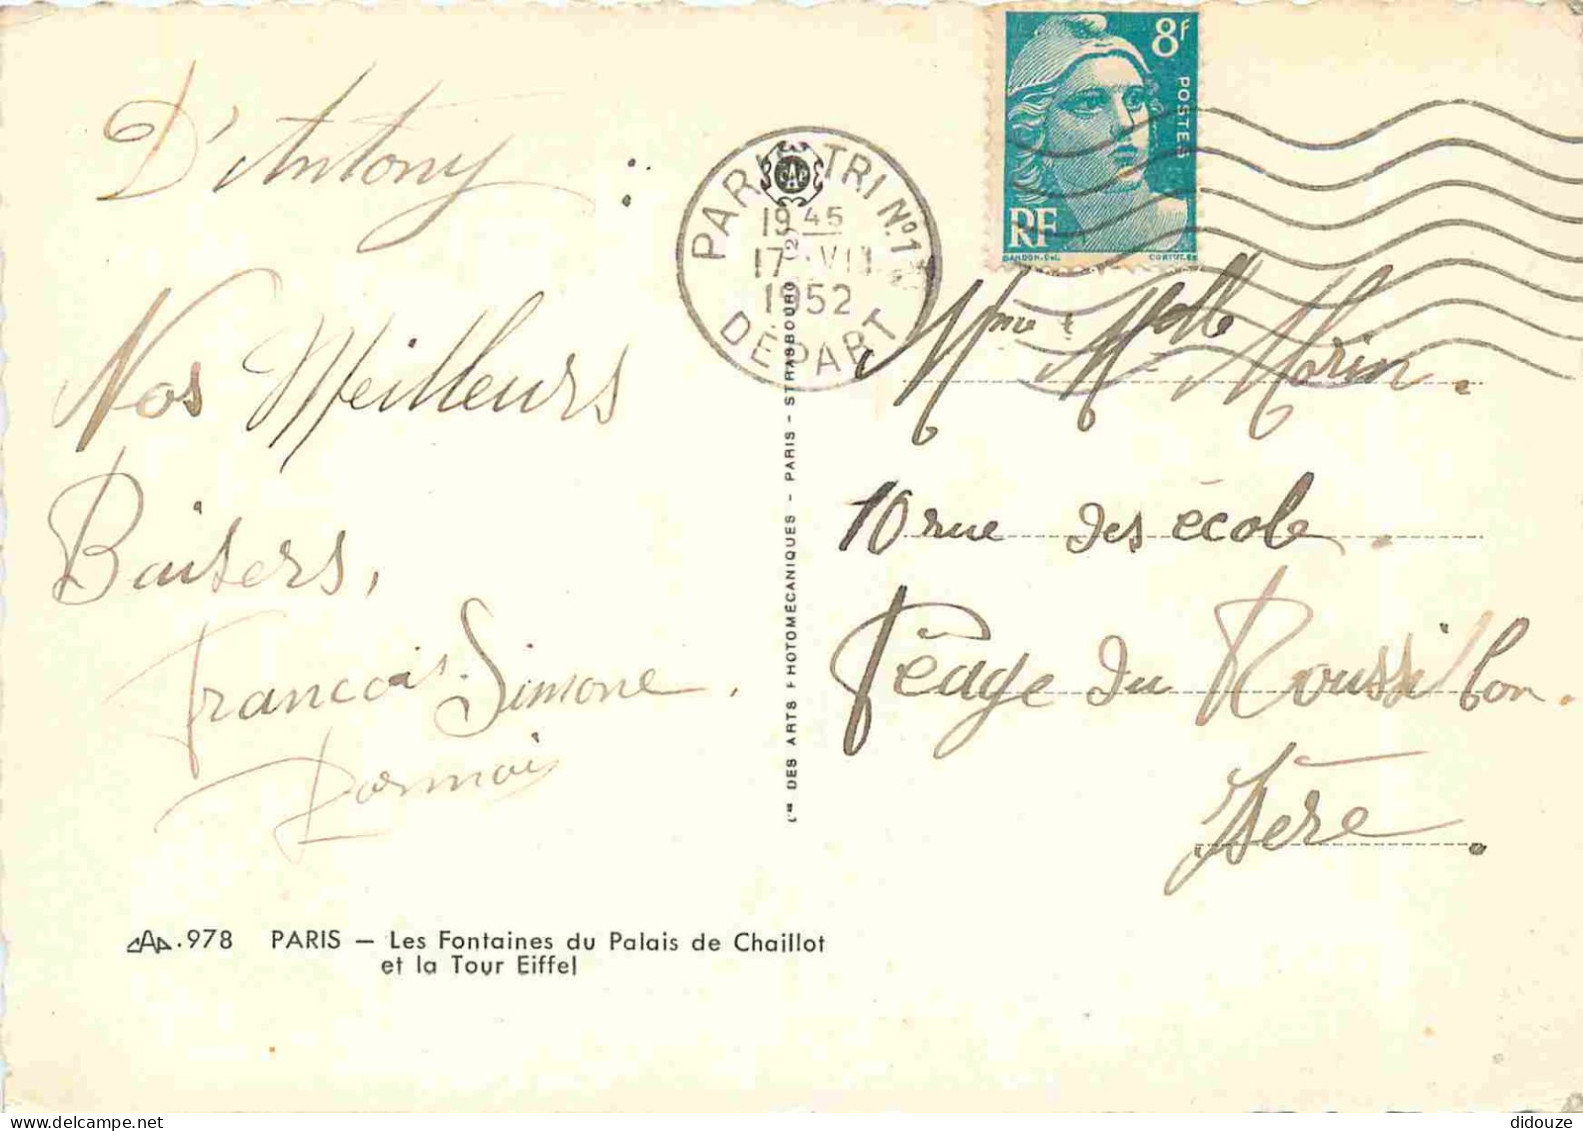 D'Antony :
Nos Meilleurs
Baisers,
Francois. Simone.
CAP.978 PARIS — Les Fontaines du Palais de Chaillot
et la Tour Eiffel
PARIS TRI N°1
19 45
17 VII
1952
DÉPART
Cie DES ARTS PHOTOMÉCANIQUES - PARIS - STRASBOURG
8F
POSTES
RF
GANDON.Del.
CORTOT.Sc
Mme & Melle Morin.
10 rue des école.
Péage du Roussillon.
Isère.
didouze